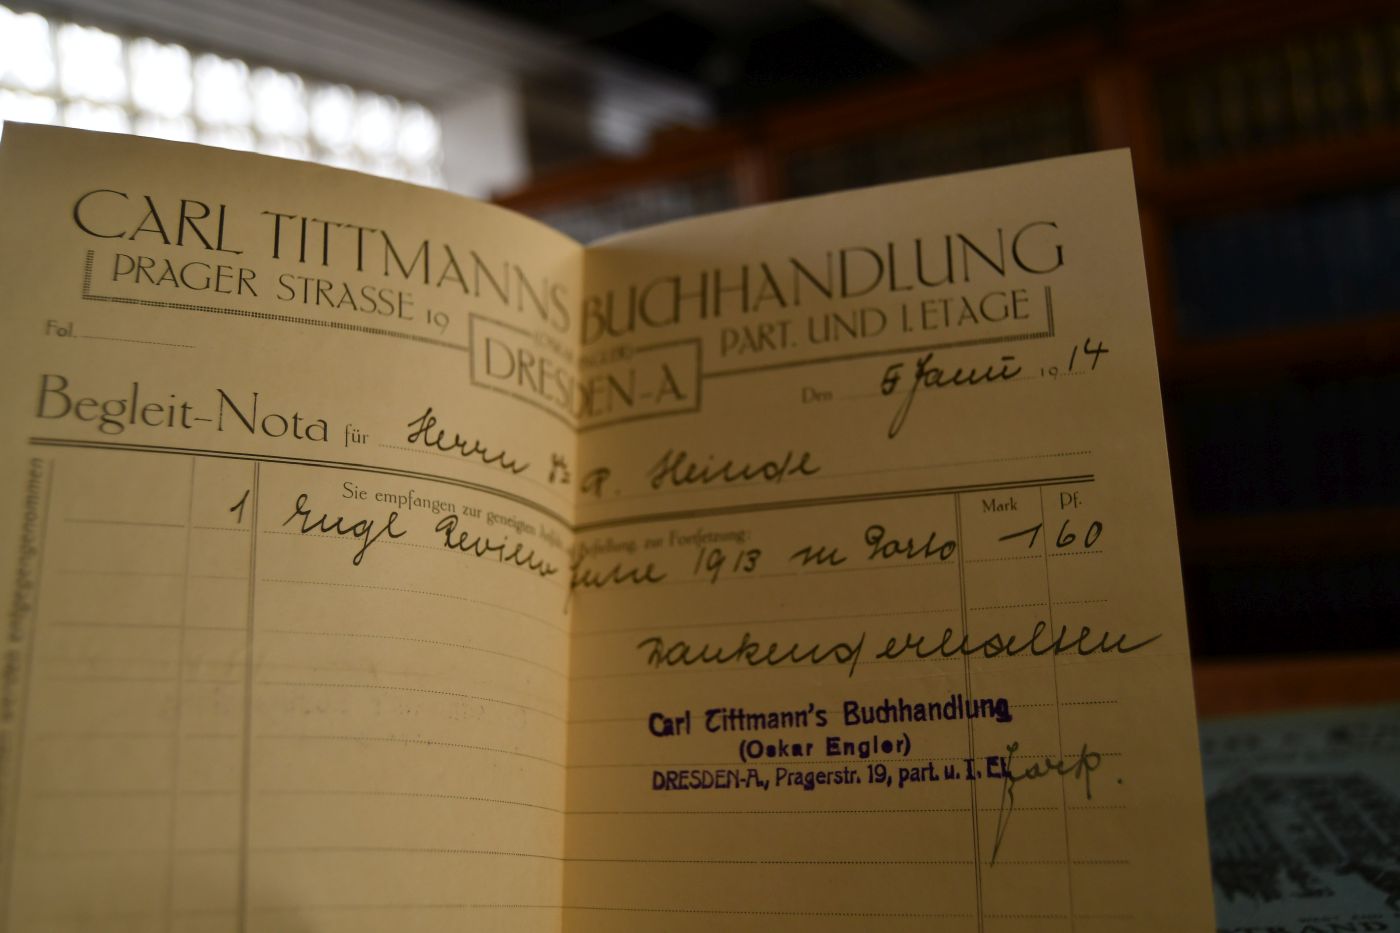 CARL TITTMANNS BUCHHANDLUNG
PRAGER STRASSE 19 PART. UND I. ETAGE
DRESDEN-A.
Fol.
Den 5 Januar 1914
Begleit-Nota für Herrn P. Heinde
Sie empfangen zur geneigten Bestellung, zur Fortsetzung:
Mark Pf.
1 Engl Review June 1913 m Porto 1 60
entgegengenommen
Dankend erhalten
Carl Tittmann's Buchhandlung
(Oskar Engler)
DRESDEN-A., Pragerstr. 19, part. u. I. Et.